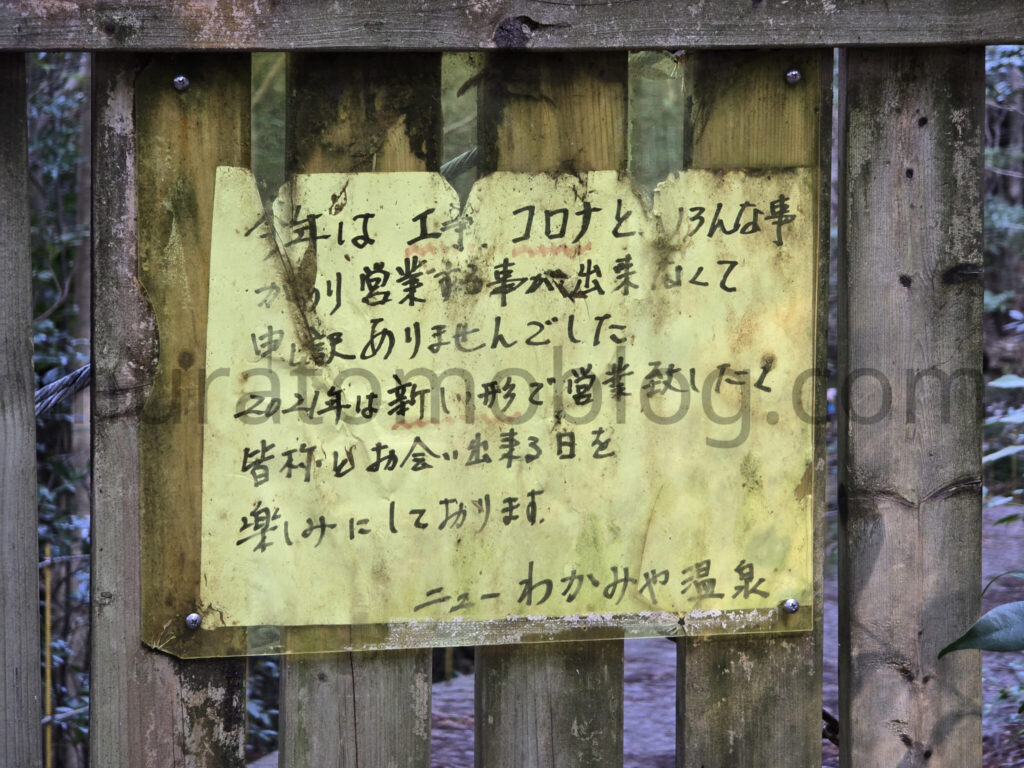 今年は 工事、コロナと いろんな事
があり 営業する事が出来なくて
申し訳ありませんでした。
2021年は新しい形で営業致したく
皆称とお会い出来る日を
楽しみにしております。
ニューわかみや温泉
uratomoblog.com